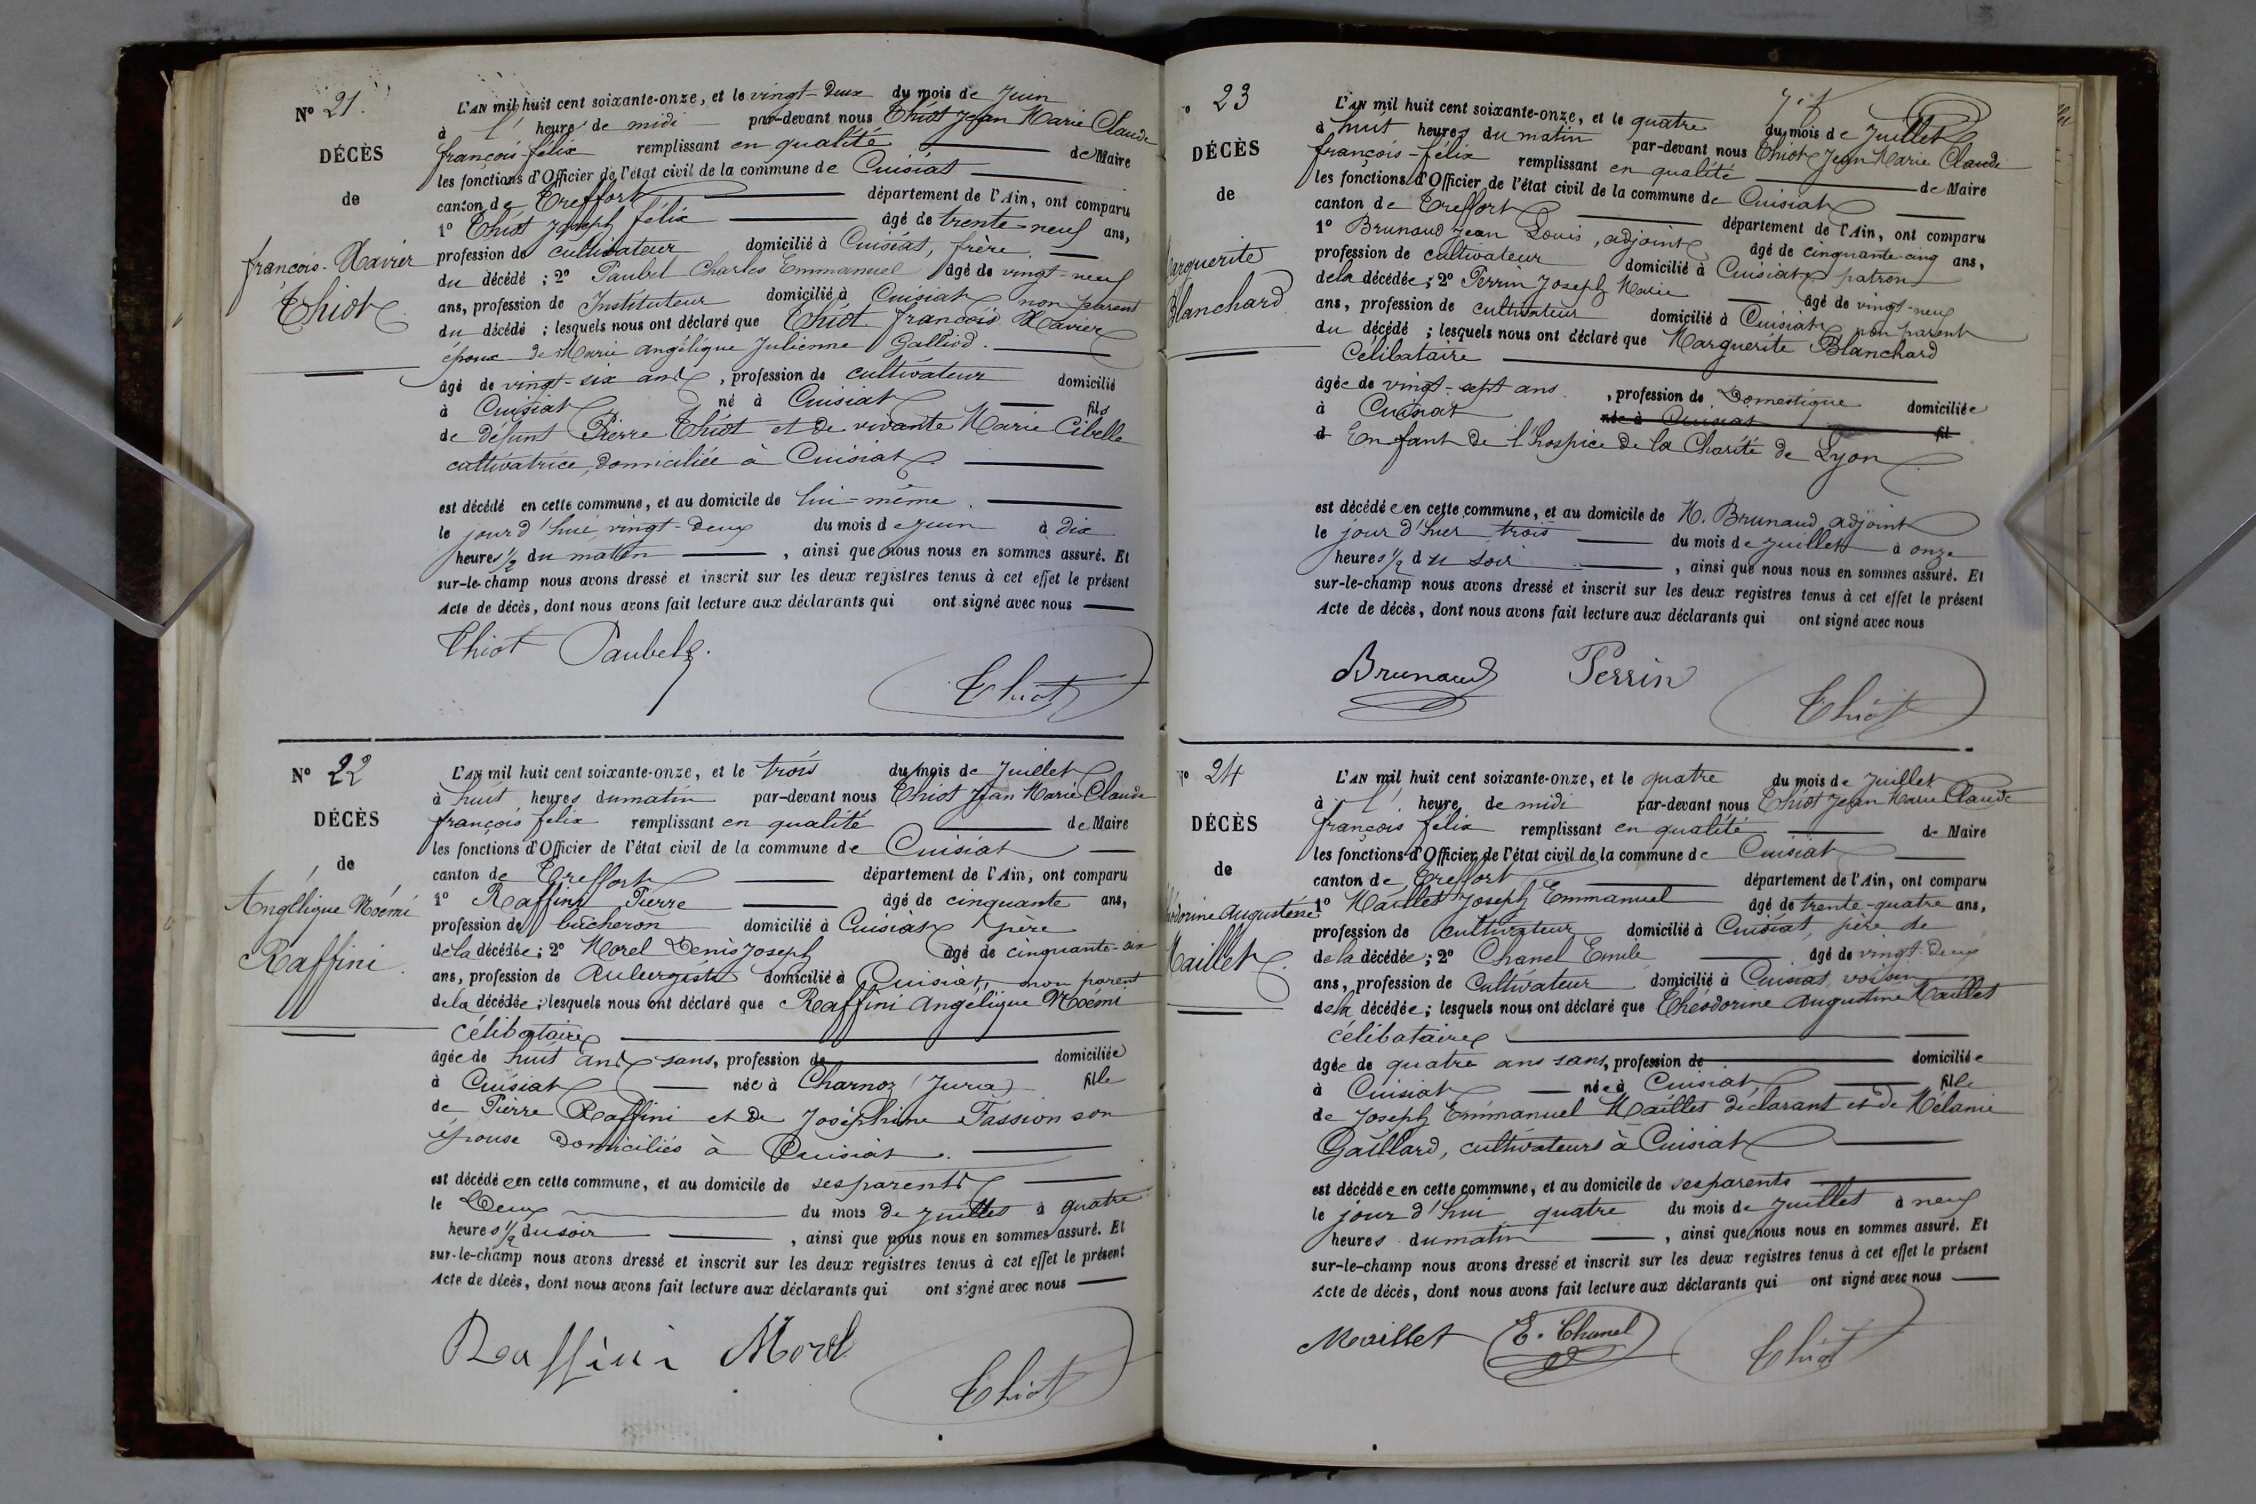 N° 21.
DÉCÈS
de
françois-Xavier
Thiot
L'AN mil huit cent soixante-onze, et le vingt-deux du mois de Juin
à l' heure de midi par-devant nous Thiot Jean Marie Claude
françois félix remplissant en qualité de Maire
les fonctions d'Officier de l'état civil de la commune de Cuisiat
canton de Treffort département de l'Ain, ont comparu
1° Thiot Joseph félix âgé de trente-neuf ans,
profession de cultivateur domicilié à Cuisiat, frère
du décédé ; 2° Paubel Charles Emmanuel âgé de vingt-neuf
ans, profession de Instituteur domicilié à Cuisiat non parent
du décédé ; lesquels nous ont déclaré que Thiot françois Xavier
époux de Marie angélique Julienne Galliod.
âgé de vingt-six ans, profession de cultivateur domicilié
à Cuisiat né à Cuisiat fils
de défunt Pierre Thiot et de vivante Marie Cibelle
cultivatrice, domiciliée à Cuisiat
est décédé en cette commune, et au domicile de lui-même.
le jour d'hui vingt-deux du mois de Juin à dix
heures ½ du matin, ainsi que nous nous en sommes assuré. Et
sur-le-champ nous avons dressé et inscrit sur les deux registres tenus à cet effet le présent
Acte de décès, dont nous avons fait lecture aux déclarants qui ont signé avec nous
Thiot Paubel
Thiot
N° 22
DÉCÈS
de
Angélique Noémi
Raffini.
L'AN mil huit cent soixante-onze, et le trois du mois de Juillet
à huit heures du matin par-devant nous Thiot Jean Marie Claude
françois félix remplissant en qualité de Maire
les fonctions d'Officier de l'état civil de la commune de Cuisiat
canton de Treffort département de l'Ain, ont comparu
1° Raffini Pierre âgé de cinquante ans,
profession de bûcheron domicilié à Cuisiat père
de la décédée ; 2° Morel Denis Joseph âgé de cinquante-six
ans, profession de Aubergiste domicilié à Cuisiat, non parent
de la décédée ; lesquels nous ont déclaré que Raffini Angélique Noémi
célibataire
âgée de huit ans sans, profession de domiciliée
à Cuisiat née à Charnoz (Jura) fille
de Pierre Raffini et de Joséphine Fassion son
épouse domiciliés à Cuisiat.
est décédée en cette commune, et au domicile de ses parents
le Deux du mois de Juillet à quatre
heures ½ du soir, ainsi que nous nous en sommes assuré. Et
sur-le-champ nous avons dressé et inscrit sur les deux registres tenus à cet effet le présent
Acte de décès, dont nous avons fait lecture aux déclarants qui ont signé avec nous
Raffini Morel
Thiot
° 23
DÉCÈS
de
arguerite
Blanchard
L'AN mil huit cent soixante-onze, et le quatre du mois de Juillet
à huit heures du matin par-devant nous Thiot Jean Marie Claude
françois-félix remplissant en qualité de Maire
les fonctions d'Officier de l'état civil de la commune de Cuisiat
canton de Treffort département de l'Ain, ont comparu
1° Brunaud Jean Louis, adjoint âgé de cinquante-cinq ans,
profession de cultivateur domicilié à Cuisiat, patron
de la décédée ; 2° Perrin Joseph Marie âgé de vingt-neuf
ans, profession de cultivateur domicilié à Cuisiat non parent
du décédé ; lesquels nous ont déclaré que Marguerite Blanchard
Célibataire
âgée de vingt-sept ans. , profession de Domestique domiciliée
à Cuisiat née à Cuisiat fil
d Enfant de l'hospice de la Charité de Lyon
est décédée en cette commune, et au domicile de M. Brunaud adjoint
le jour d'hier trois du mois de Juillet à onze
heures ½ du soir, ainsi que nous nous en sommes assuré. Et
sur-le-champ nous avons dressé et inscrit sur les deux registres tenus à cet effet le présent
Acte de décès, dont nous avons fait lecture aux déclarants qui ont signé avec nous
Brunaud Perrin
Thiot
° 24
DÉCÈS
de
éodorine Augustine
Maillet
L'AN mil huit cent soixante-onze, et le quatre du mois de Juillet
à l' heure de midi par-devant nous Thiot Jean Marie Claude
françois félix remplissant en qualité de Maire
les fonctions d'Officier de l'état civil de la commune de Cuisiat
canton de Treffort département de l'Ain, ont comparu
1° Maillet Joseph Emmanuel âgé de trente-quatre ans,
profession de Cultivateur domicilié à Cuisiat, père de
de la décédée ; 2° Chanel Emile âgé de vingt-deux
ans, profession de Cultivateur domicilié à Cuisiat voisin
de la décédée ; lesquels nous ont déclaré que Théodorine Augustine Maillet
célibataire
âgée de quatre ans sans, profession de domiciliée
à Cuisiat née à Cuisiat fille
de Joseph Emmanuel Maillet déclarant et de Mélanie
Gaillard, cultivateurs à Cuisiat
est décédée en cette commune, et au domicile de ses parents
le jour d'hui quatre du mois de Juillet à neuf
heures du matin, ainsi que nous nous en sommes assuré. Et
sur-le-champ nous avons dressé et inscrit sur les deux registres tenus à cet effet le présent
Acte de décès, dont nous avons fait lecture aux déclarants qui ont signé avec nous
Maillet E. Chanel Thiot